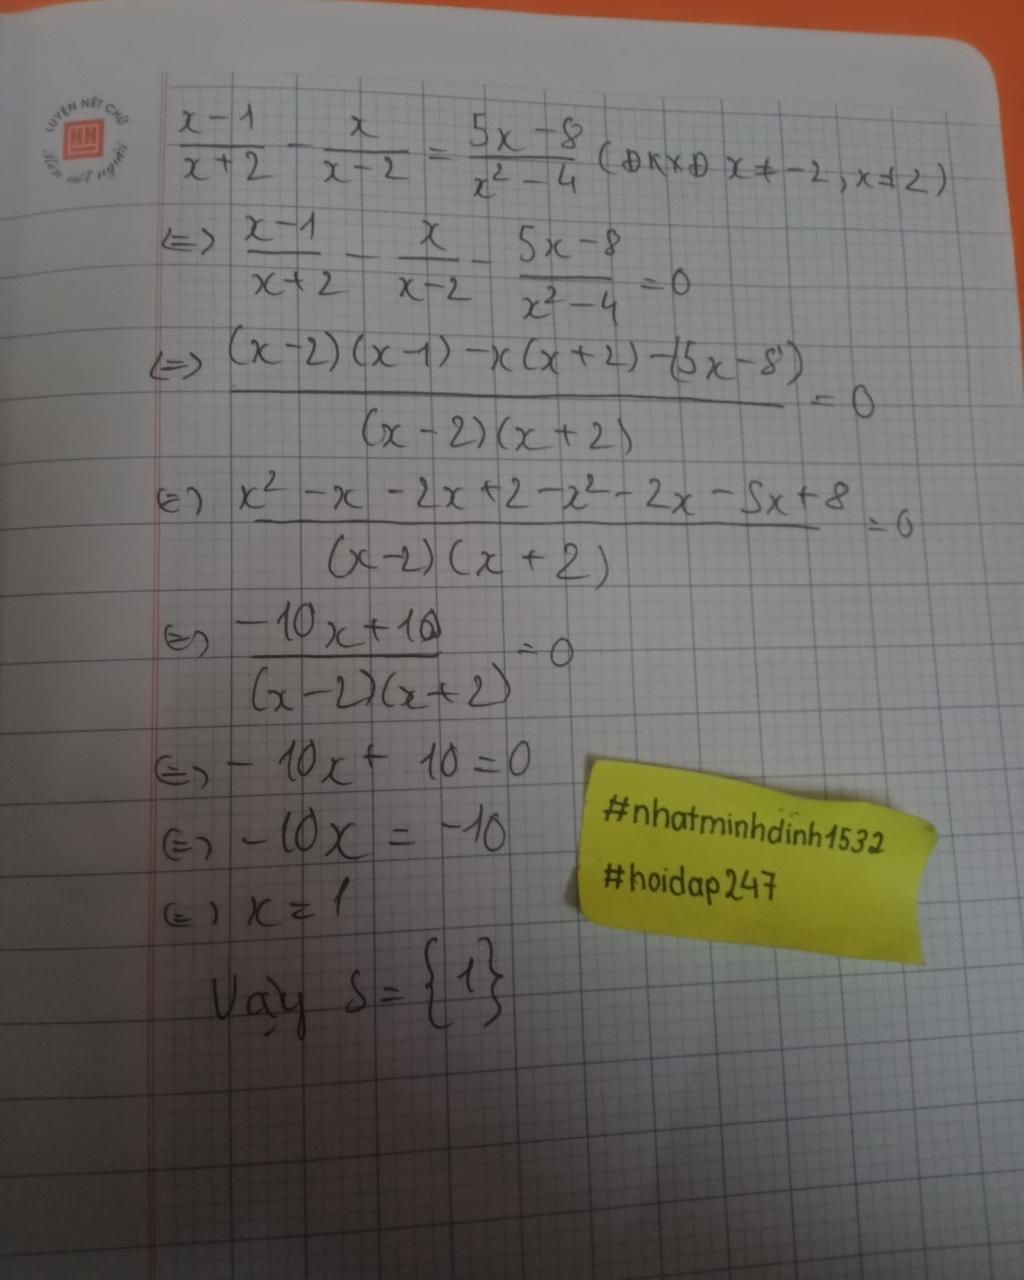 LUYỆN NÉT CHỮ
HN
Rèn nết người
x-1/x+2 - x/x-2 = 5x-8/x²-4 (ĐKXĐ x≠-2, x≠2)
<=> x-1/x+2 - x/x-2 - 5x-8/x²-4 = 0
<=> (x-2)(x-1)-x(x+2)-(5x-8)/(x-2)(x+2) = 0
<=> x²-x-2x+2-x²-2x-5x+8/(x-2)(x+2) = 0
<=> -10x+10/(x-2)(x+2) = 0
<=> -10x+10=0
<=> -10x = -10
<=> x = 1
Vậy S={1}
#nhatminhdinh1532
#hoidap247